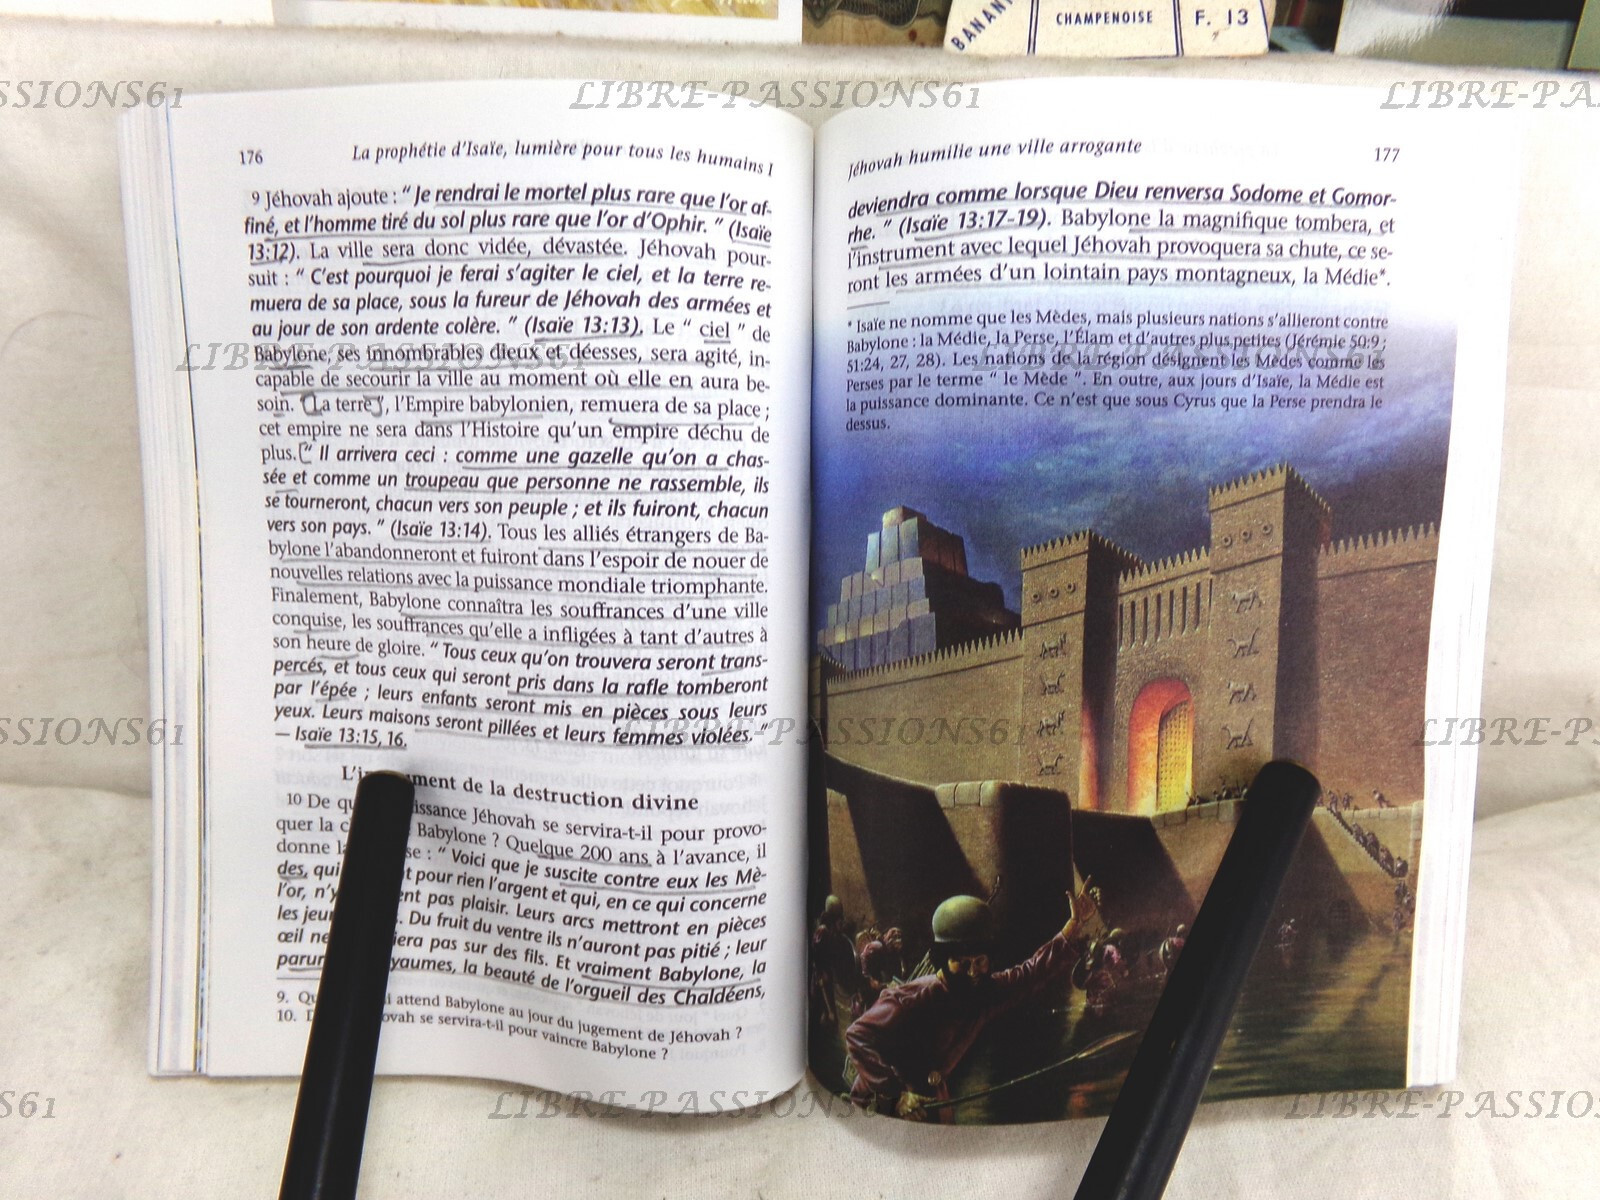 BANAN
CHAMPENOISE
F. 13
SSIONS61
LIBRE-PASSIONS61
LIBRE-PA
176
La prophétie d'Isaïe, lumière pour tous les humains I
9 Jéhovah ajoute : “ Je rendrai le mortel plus rare que l'or af-
finé, et l'homme tiré du sol plus rare que l'or d'Ophir. ” (Isaïe
13:12). La ville sera donc vidée, dévastée. Jéhovah pour-
suit : “ C'est pourquoi je ferai s'agiter le ciel, et la terre re-
muera de sa place, sous la fureur de Jéhovah des armées et
au jour de son ardente colère. ” (Isaïe 13:13). Le “ ciel ” de
Babylone, ses innombrables dieux et déesses, sera agité, in-
capable de secourir la ville au moment où elle en aura be-
soin. “ La terre ”, l'Empire babylonien, remuera de sa place ;
cet empire ne sera dans l'Histoire qu'un empire déchu de
plus. “ Il arrivera ceci : comme une gazelle qu'on a chas-
sée et comme un troupeau que personne ne rassemble, ils
se tourneront, chacun vers son peuple ; et ils fuiront, chacun
vers son pays. ” (Isaïe 13:14). Tous les alliés étrangers de Ba-
bylone l'abandonneront et fuiront dans l'espoir de nouer de
nouvelles relations avec la puissance mondiale triomphante.
Finalement, Babylone connaîtra les souffrances d'une ville
conquise, les souffrances qu'elle a infligées à tant d'autres à
son heure de gloire. “ Tous ceux qu'on trouvera seront trans-
percés, et tous ceux qui seront pris dans la rafle tomberont
par l'épée ; leurs enfants seront mis en pièces sous leurs
yeux. Leurs maisons seront pillées et leurs femmes violées. ”
— Isaïe 13:15, 16.
L'in ument de la destruction divine
10 De qu issance Jéhovah se servira-t-il pour provo-
quer la c Babylone ? Quelque 200 ans à l'avance, il
donne la se : “ Voici que je suscite contre eux les Mè-
des, qui t pour rien l'argent et qui, en ce qui concerne
l'or, n'y ent pas plaisir. Leurs arcs mettront en pièces
les jeu . Du fruit du ventre ils n'auront pas pitié ; leur
œil ne iera pas sur des fils. Et vraiment Babylone, la
parur yaumes, la beauté de l'orgueil des Chaldéens,
9. Qu i attend Babylone au jour du jugement de Jéhovah ?
10. D ovah se servira-t-il pour vaincre Babylone ?
Jéhovah humilie une ville arrogante
177
deviendra comme lorsque Dieu renversa Sodome et Gomor-
rhe. ” (Isaïe 13:17-19). Babylone la magnifique tombera, et
l'instrument avec lequel Jéhovah provoquera sa chute, ce se-
ront les armées d'un lointain pays montagneux, la Médie*.
* Isaïe ne nomme que les Mèdes, mais plusieurs nations s'allieront contre
Babylone : la Médie, la Perse, l'Élam et d'autres plus petites (Jérémie 50:9 ;
51:24, 27, 28). Les nations de la région désignent les Mèdes comme les
Perses par le terme “ le Mède ”. En outre, aux jours d'Isaïe, la Médie est
la puissance dominante. Ce n'est que sous Cyrus que la Perse prendra le
dessus.
LIBRE-PASSIONS61
LIBRE-PASSIONS61
SSIONS61
LIBRE-PASSIONS61
LIBRE-P
S61
LIBRE-PASSIONS61
LIBRE-PASSIONS